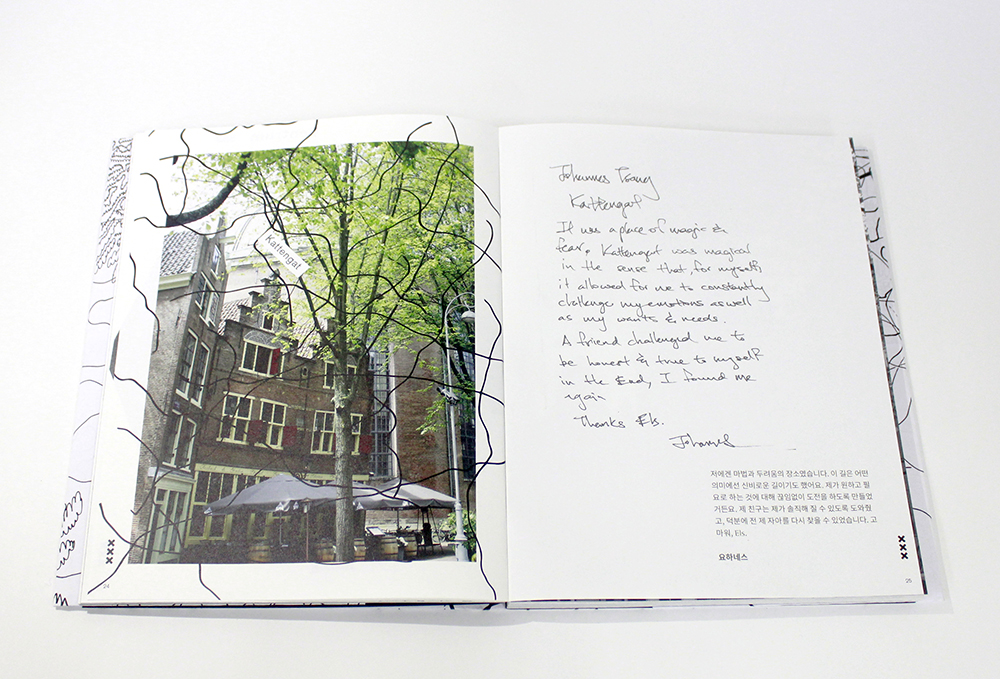 Kattengat
XXX
24
Johannes
Kattengat
It was a place of magic &
fear. Kattengat was magical
in the sense that, for myself,
it allowed for me to constantly
challenge my emotions as well
as my wants & needs.
A friend challenged me to
be honest & true to myself
in the End, I found me
again
Thanks Els.
Johannes
저에겐 마법과 두려움의 장소였습니다. 이 길은 어떤
의미에선 신비로운 길이기도 했어요. 제가 원하고 필
요로 하는 것에 대해 끊임없이 도전을 하도록 만들었
거든요. 제 친구는 제가 솔직해 질 수 있도록 도와줬
고, 덕분에 전 제 자아를 다시 찾을 수 있었습니다. 고
마워, Els.
요하네스
XXX
25